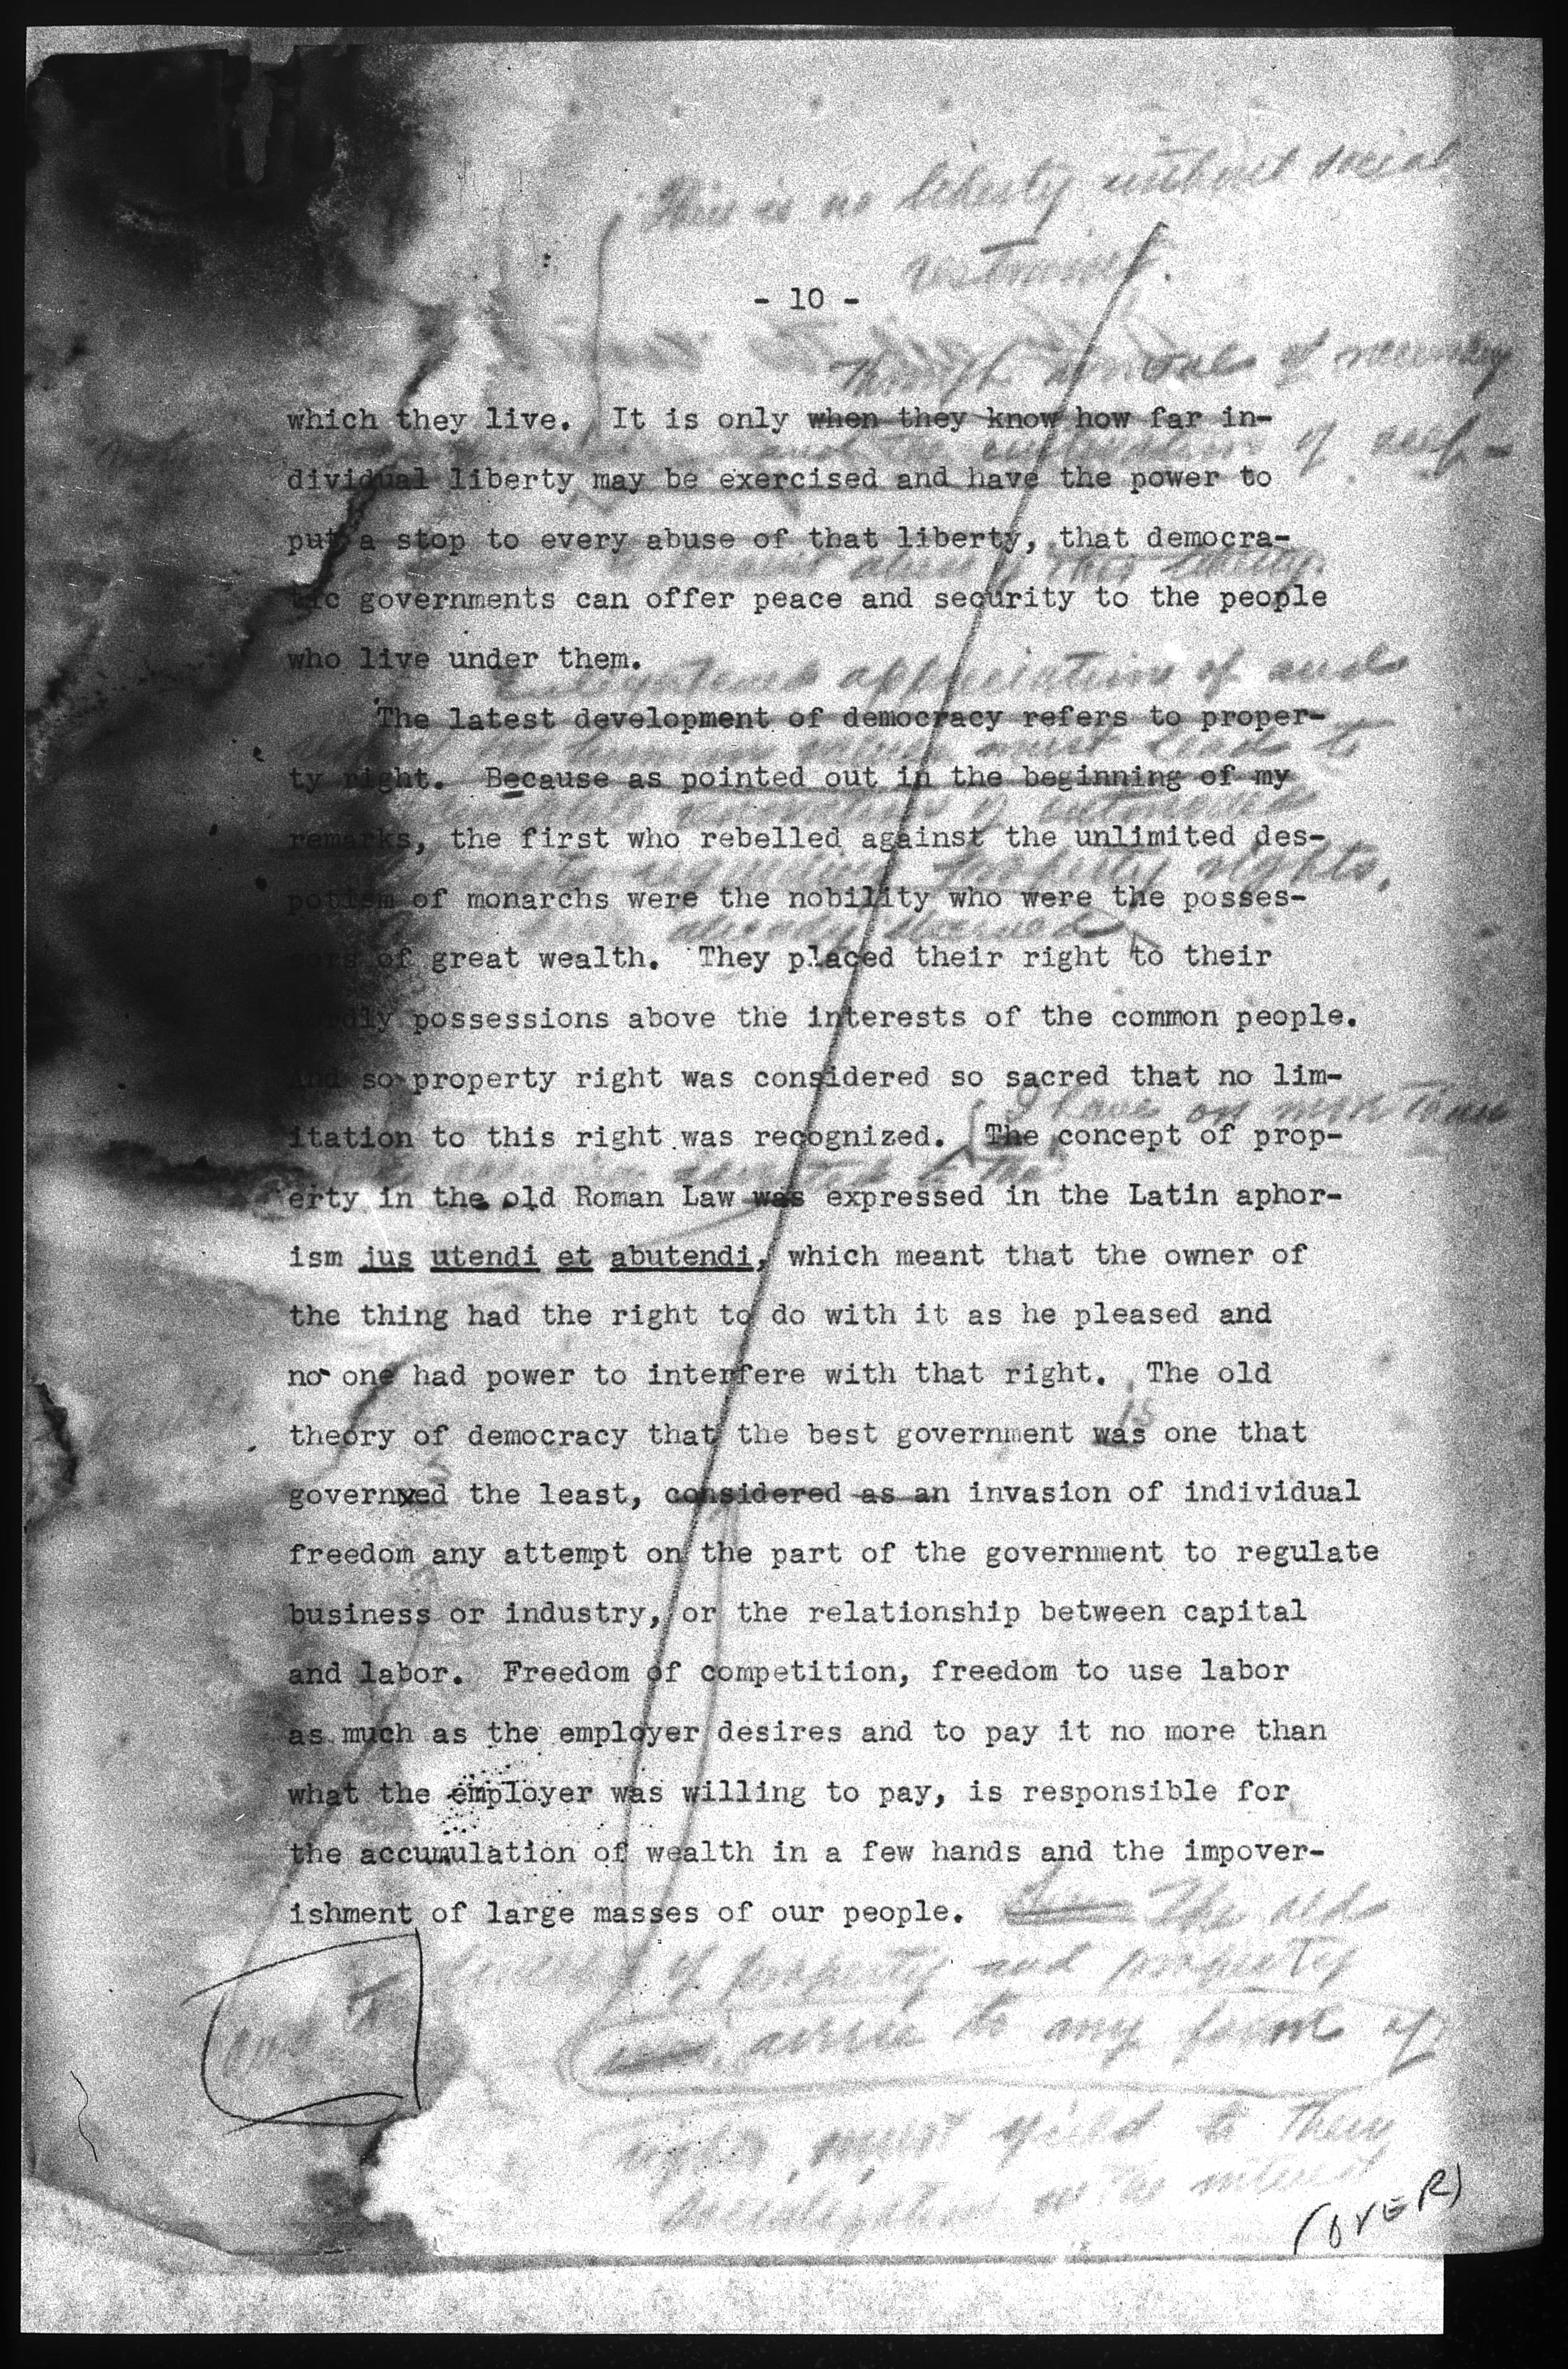 There is no liberty without social
restraint.
- 10 -
through removal of necessary
which they live. It is only when they know how far in-
and the cultivation of self-
dividual liberty may be exercised and have the power to
put a stop to every abuse of that liberty, that democra-
to prevent abuse of this liberty,
tic governments can offer peace and security to the people
who live under them.
Enlightened appreciation of and
The latest development of democracy refers to proper-
human values must lead to
ty right. Because as pointed out in the beginning of my
of
remarks, the first who rebelled against the unlimited des-
property rights.
potism of monarchs were the nobility who were the posses-
already
sors of great wealth. They placed their right to their
possessions above the interests of the common people.
And so property right was considered so sacred that no lim-
I have on more than
itation to this right was recognized. The concept of prop-
to the
erty in the old Roman Law was expressed in the Latin aphor-
ism jus utendi et abutendi, which meant that the owner of
the thing had the right to do with it as he pleased and
no one had power to interfere with that right. The old
is
theory of democracy that the best government was one that
s
governxed the least, considered as an invasion of individual
freedom any attempt on the part of the government to regulate
business or industry, or the relationship between capital
and labor. Freedom of competition, freedom to use labor
as much as the employer desires and to pay it no more than
what the employer was willing to pay, is responsible for
the accumulation of wealth in a few hands and the impover-
ishment of large masses of our people. The old
of property and property
to any form of
rights, must yield to their
socialization in the interest
(OVER)